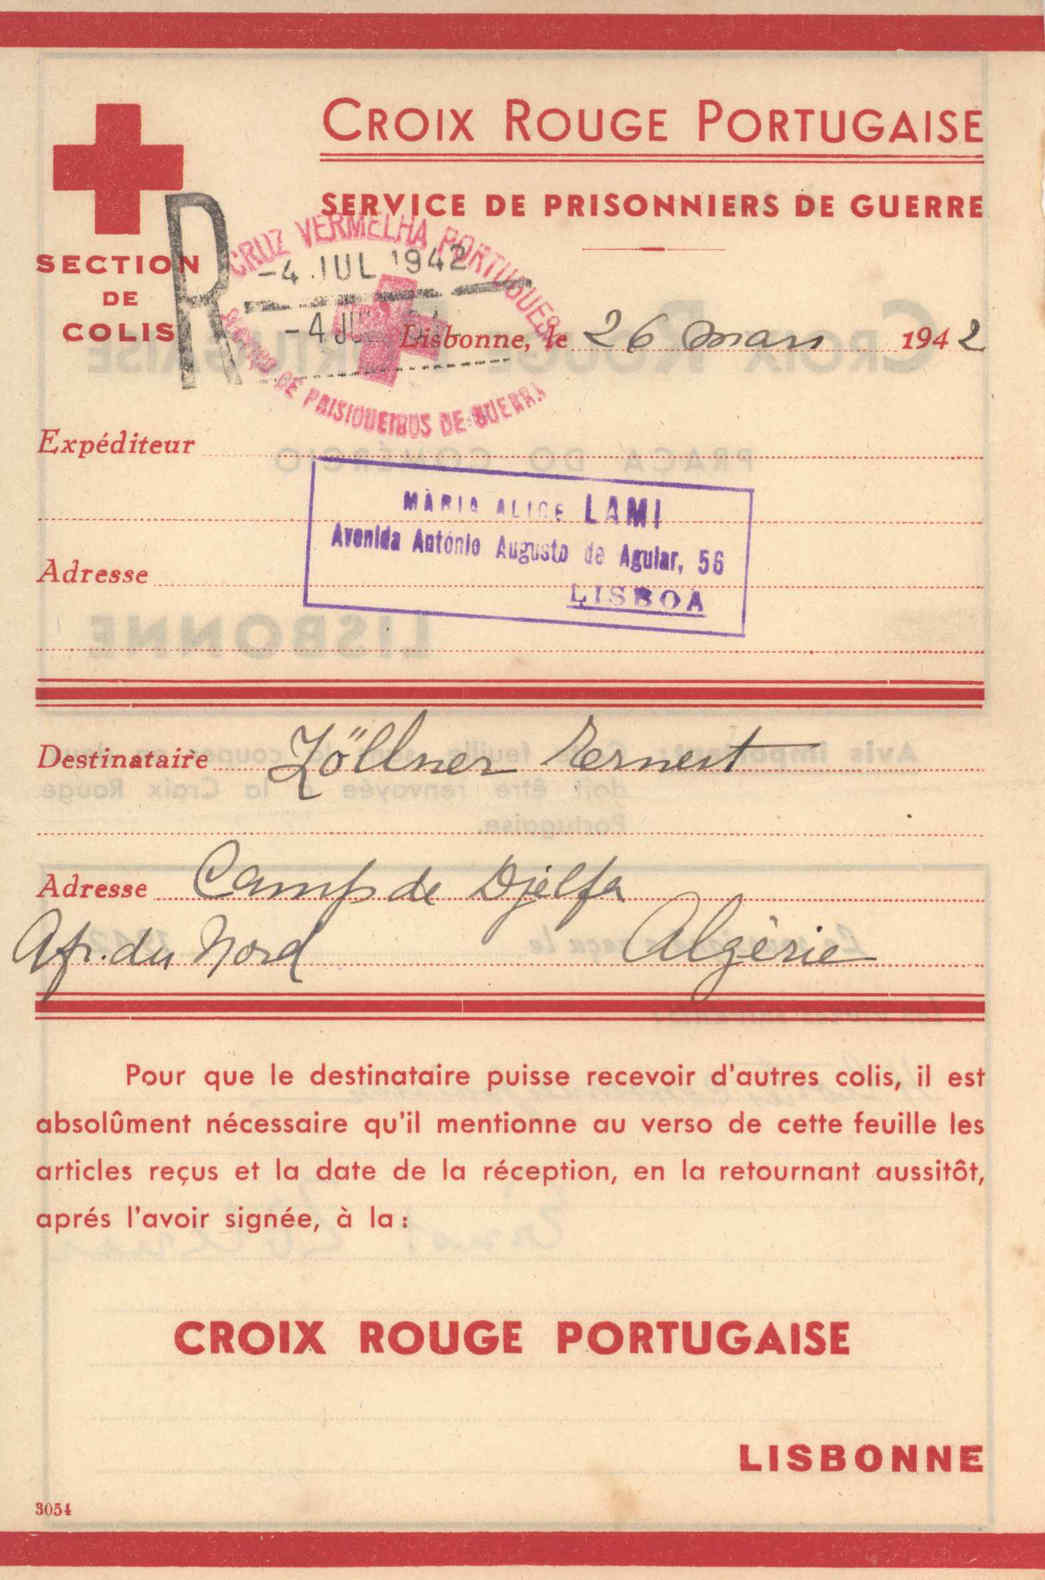 CROIX ROUGE PORTUGAISE
SERVICE DE PRISONNIERS DE GUERRE
SECTION
DE
COLIS
R
CRUZ VERMELHA PORTUGUESA
-4 JUL 1942
-4 JU
DE PRISIONEIROS DE GUERRA
Lisbonne, le 26 mars 1942
Expéditeur
MARIA ALICE LAMI
Avenida António Augusto de Aguiar, 56
LISBOA
Adresse
Destinataire Zöllner Ernest
Adresse Camp de Djelfa
Afr. du Nord Algérie
Pour que le destinataire puisse recevoir d'autres colis, il est
absolûment nécessaire qu'il mentionne au verso de cette feuille les
articles reçus et la date de la réception, en la retournant aussitôt,
aprés l'avoir signée, à la:
CROIX ROUGE PORTUGAISE
LISBONNE
3054